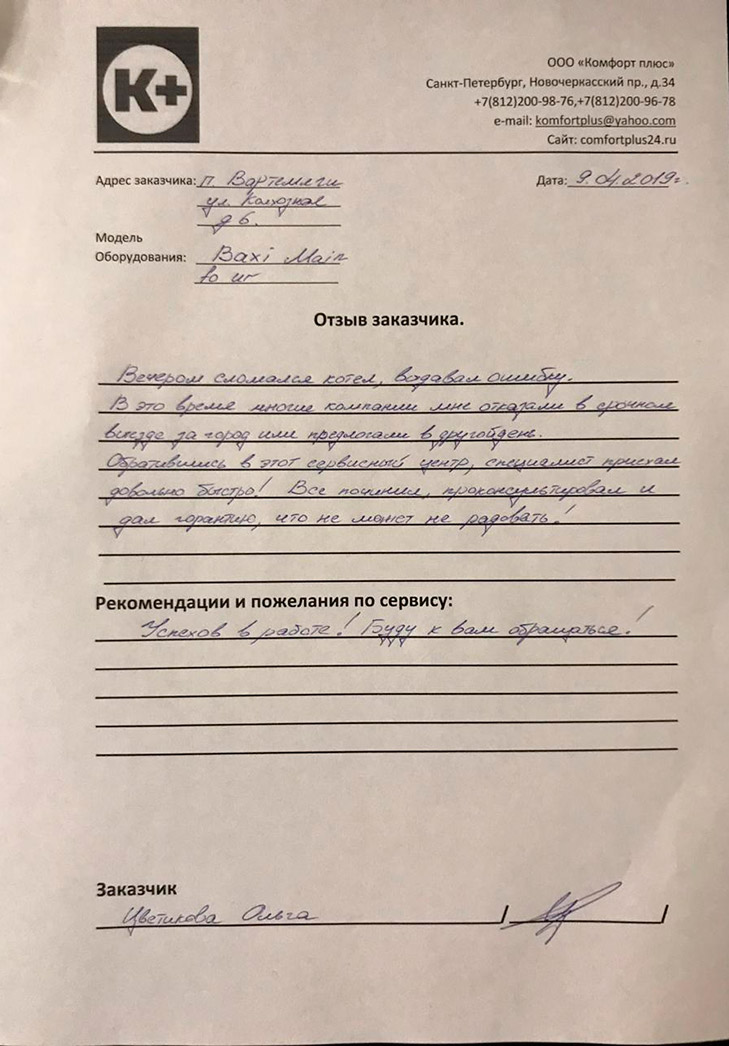 K+
ООО «Комфорт плюс»
Санкт-Петербург, Новочеркасский пр., д.34
+7(812)200-98-76,+7(812)200-96-78
e-mail: komfortplus@yahoo.com
Сайт: comfortplus24.ru
Адрес заказчика: п. Вартемяги
Дата: 9.04.2019г.
ул. Колхозная
д 6.
Модель
Оборудования: Baxi Main
Отзыв заказчика.
Вечером сломался котел, выдавал ошибку.
В это время многие компании мне отказали в срочном
выезде за город или предлогали в другой день.
Обратившись в этот сервисный центр, специалист приехал
довольно быстро! Все починил, проконсультировал и
дал горантию, что не может не радовать!
Рекомендации и пожелания по сервису:
Успехов в работе! Буду к вам обращаться!
Заказчик
Цветикова Ольга